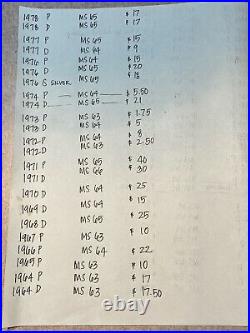 1978 P MS 65 $ 17
1978 D MS 65 $ 17
1977 P MS 65 $ 15
1977 D MS 64 $ 9
1976 P MS 64 $ 15
1976 D MS 65 $ 20
1976 S SILVER MS 65 $ 18
1974 P — MS 64 — $ 5.50
1974 D — MS 65 $ 21
1973 P MS 63 $ 1.75
1973 D MS 64 $ 5
1972 P MS 64 $ 8
1972 D $ 2.50
1971 P MS 65 $ 40
1971 D MS 66 $ 30
1970 D MS 64 $ 25
1969 D MS 64 $ 15
1968 D MS 65 $ 25
1967 P MS 63 $ 10
1966 P MS 64 $ 22
1965 P MS 63 $ 10
1964 P MS 63 $ 17
1964 D MS 63 $ 17.50